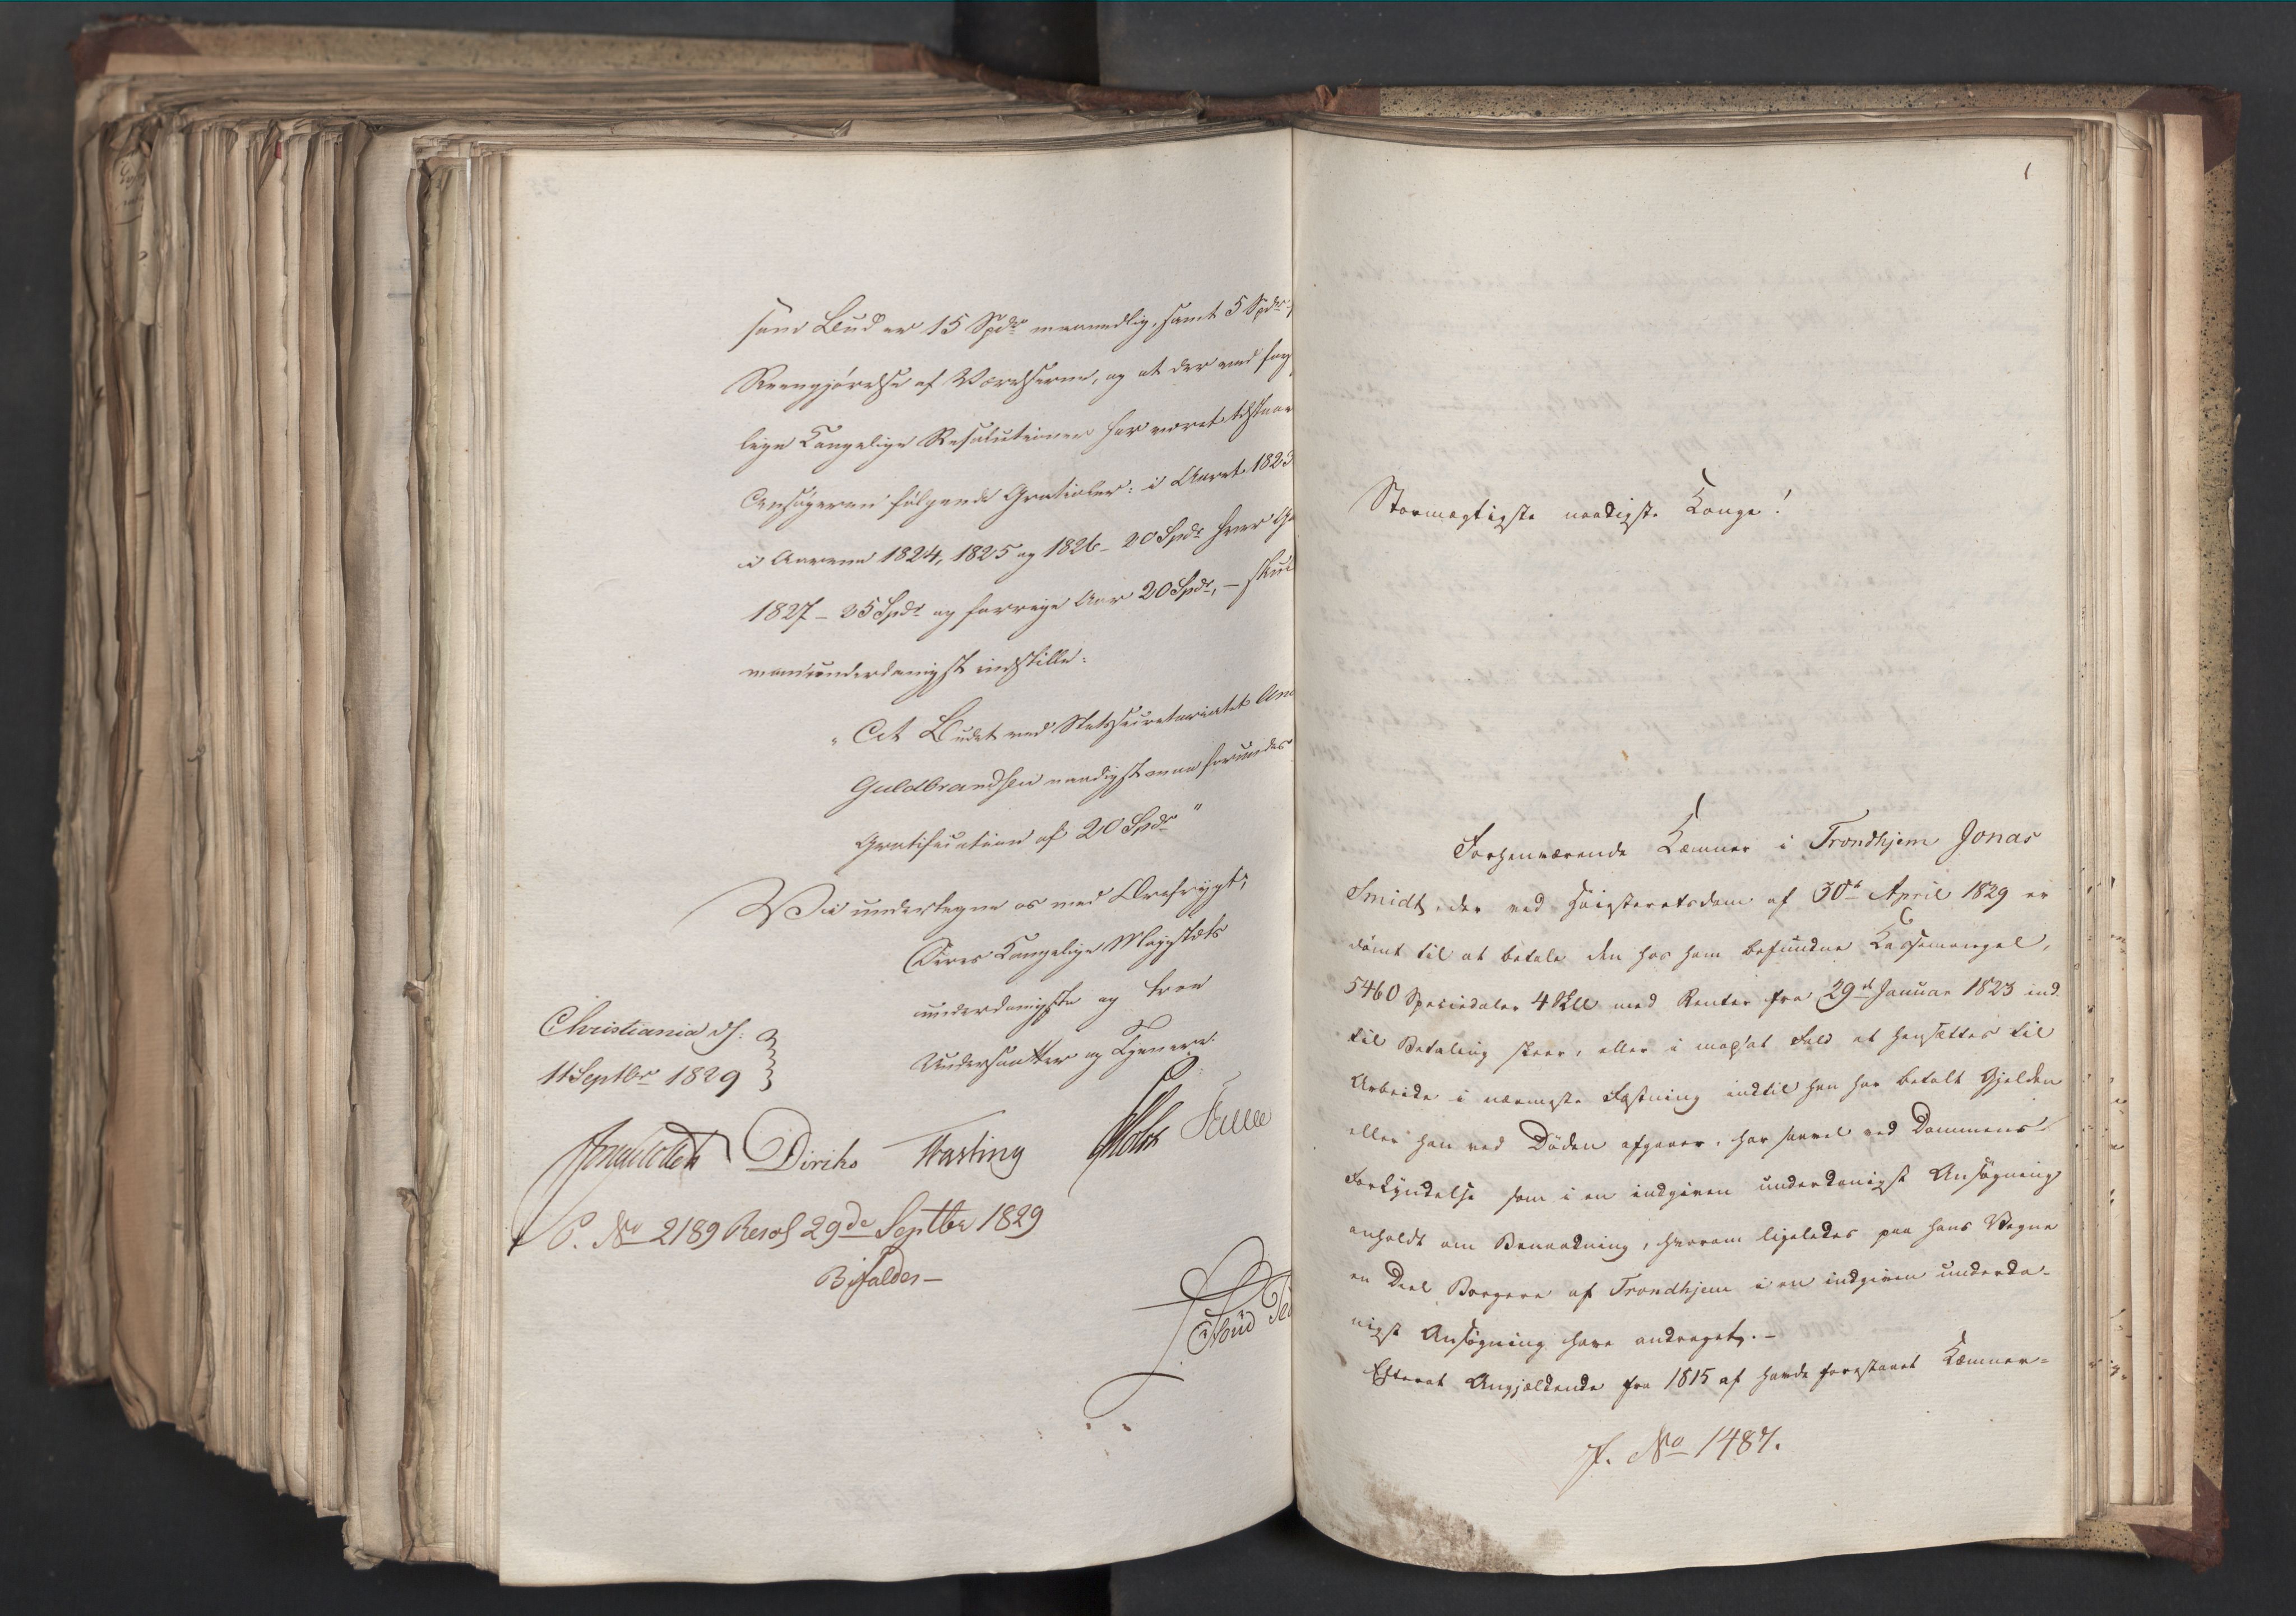 som Bud er 15 Spdr maanedlig, samt 5 Spdr
Reengjörelse af Værelserne, og at der ved sær
lige Kongelige Resolutioner har været tilstaae
Ansögeren følgende Gratialer: i Aaret 1823
i Aarene 1824, 1825 og 1826 - 20 Spdr hver
1827 - 25 Spdr og forrige Aar 20 Spdr, -
man underdanigst indstille:
"At Budet ved Statssecretariatet
Guldbrandsen naadigst maa forundes
Gratification af 20 Spdr"
Vi undertegne os med Ærefrygt,
Deres Kongelige Majestæts
underdanigste og troe
Undersaatter og Tjenere.
Christiania d:
11 Septbr 1829
Jonas Collett Diriks Fasting Holst
P. No 2189 Resol 29de Septbr 1829
Bifaldes -
1
Stormægtigste naadigste Konge!
Forhenværende Kæmner i Trondhjem Jonas
Smidt, der ved Höiesteretsdom af 30te April 1829 er
dömt til at betale den hos ham befundne Cassemangel,
5460 Speciedaler 4 Skll med Renter fra 29de Januar 1823 ind
til Betaling skeer, eller i modsat Fald at hensættes til
Arbeide i nærmeste Fæstning indtil han har betalt Gjelden
eller han ved Döden afgaaer, har saavel ved Dommens
Forkyndelse som i en indgiven underdanigst Ansögning
anholdt om Benaadning, hvorom ligeledes paa hans Vegne
en Deel Borgere af Trondhjem i en indgiven underda-
nigst Ansögning have andraget. -
Efterat Angjældende fra 1815 af havde forestaaet Kæmner-
J. No 1487.